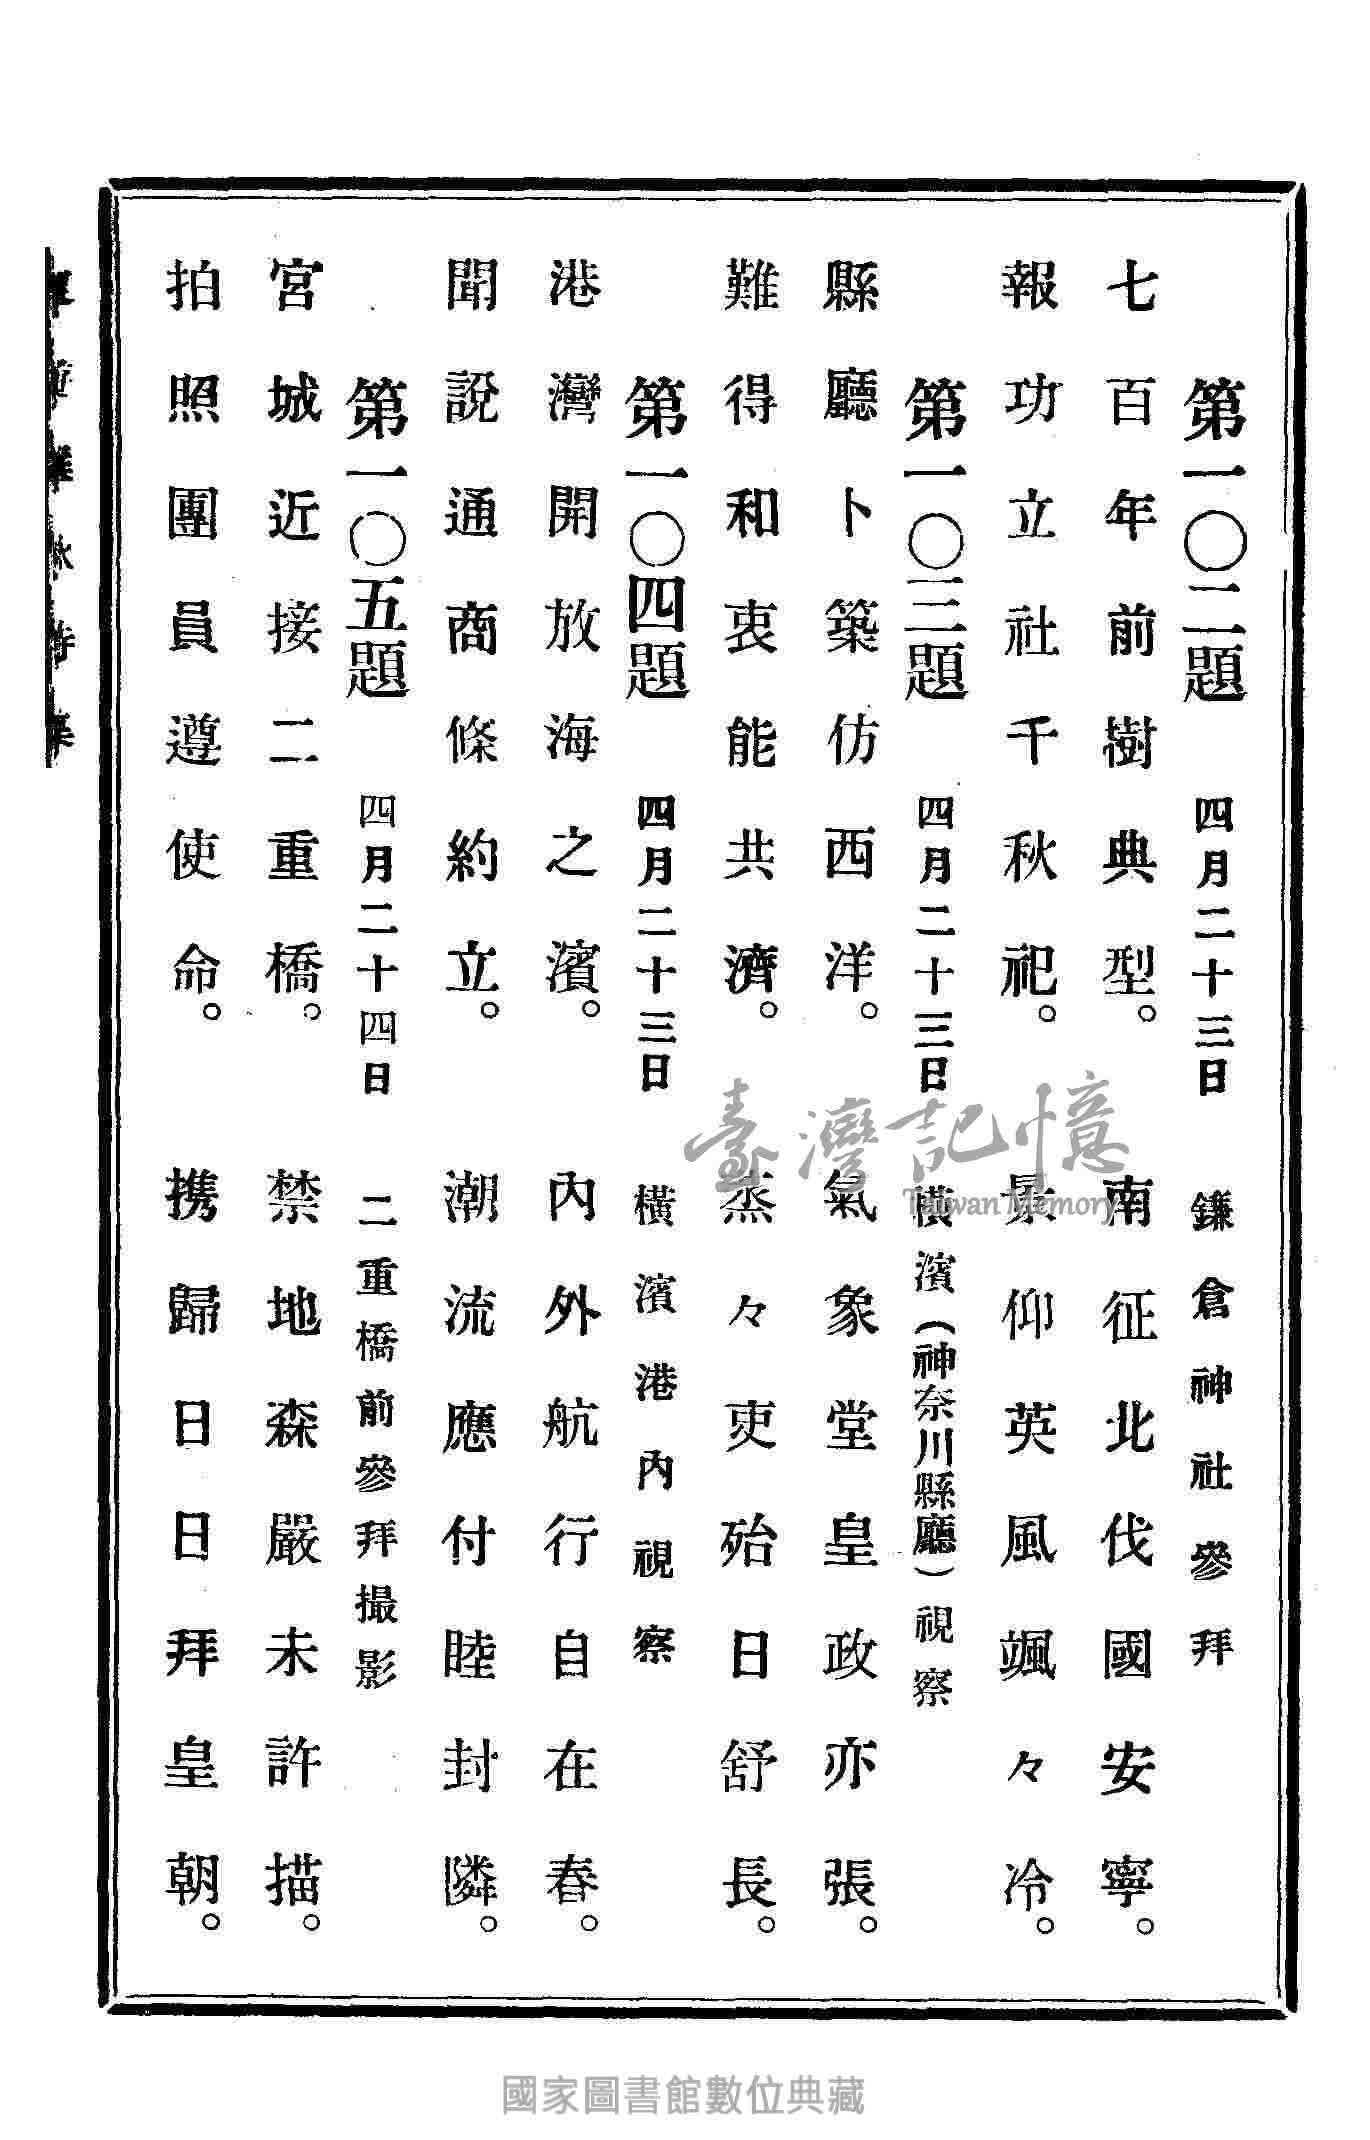 第一〇二題 四月二十三日 鎌倉神社參拜
七百年前樹典型。 南征北伐國安寧。
報功立社千秋祀。 景仰英風颯々冷。
第一〇三題 四月二十三日 橫濱(神奈川縣廳)視察
縣廳卜築仿西洋。 氣象堂皇政亦張。
難得和衷能共濟。 蒸々吏殆日舒長。
第一〇四題 四月二十三日 橫濱港內視察
港灣開放海之濱。 內外航行自在春。
聞說通商條約立。 潮流應付睦封隣。
第一〇五題 四月二十四日 二重橋前參拜撮影
宮城近接二重橋。 禁地森嚴未許描。
拍照團員遵使命。 携歸日日拜皇朝。
臺灣記憶
Taiwan Memory
國家圖書館數位典藏